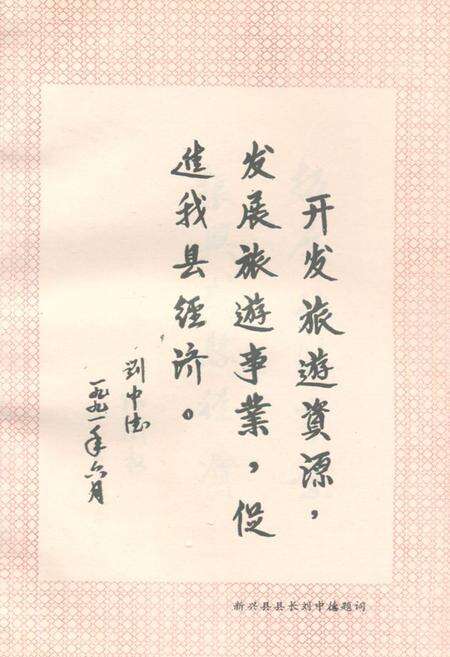 开发旅遊資源，
发展旅遊事業，促
進我县經济。
刘中德
一九九一年六月
新兴县县长刘中德题词